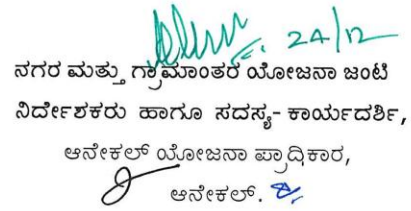 24/12
ನಗರ ಮತ್ತು ಗ್ರಾಮಾಂತರ ಯೋಜನಾ ಜಂಟಿ
ನಿರ್ದೇಶಕರು ಹಾಗೂ ಸದಸ್ಯ- ಕಾರ್ಯದರ್ಶಿ,
ಆನೇಕಲ್ ಯೋಜನಾ ಪ್ರಾಧಿಕಾರ,
ಆನೇಕಲ್.